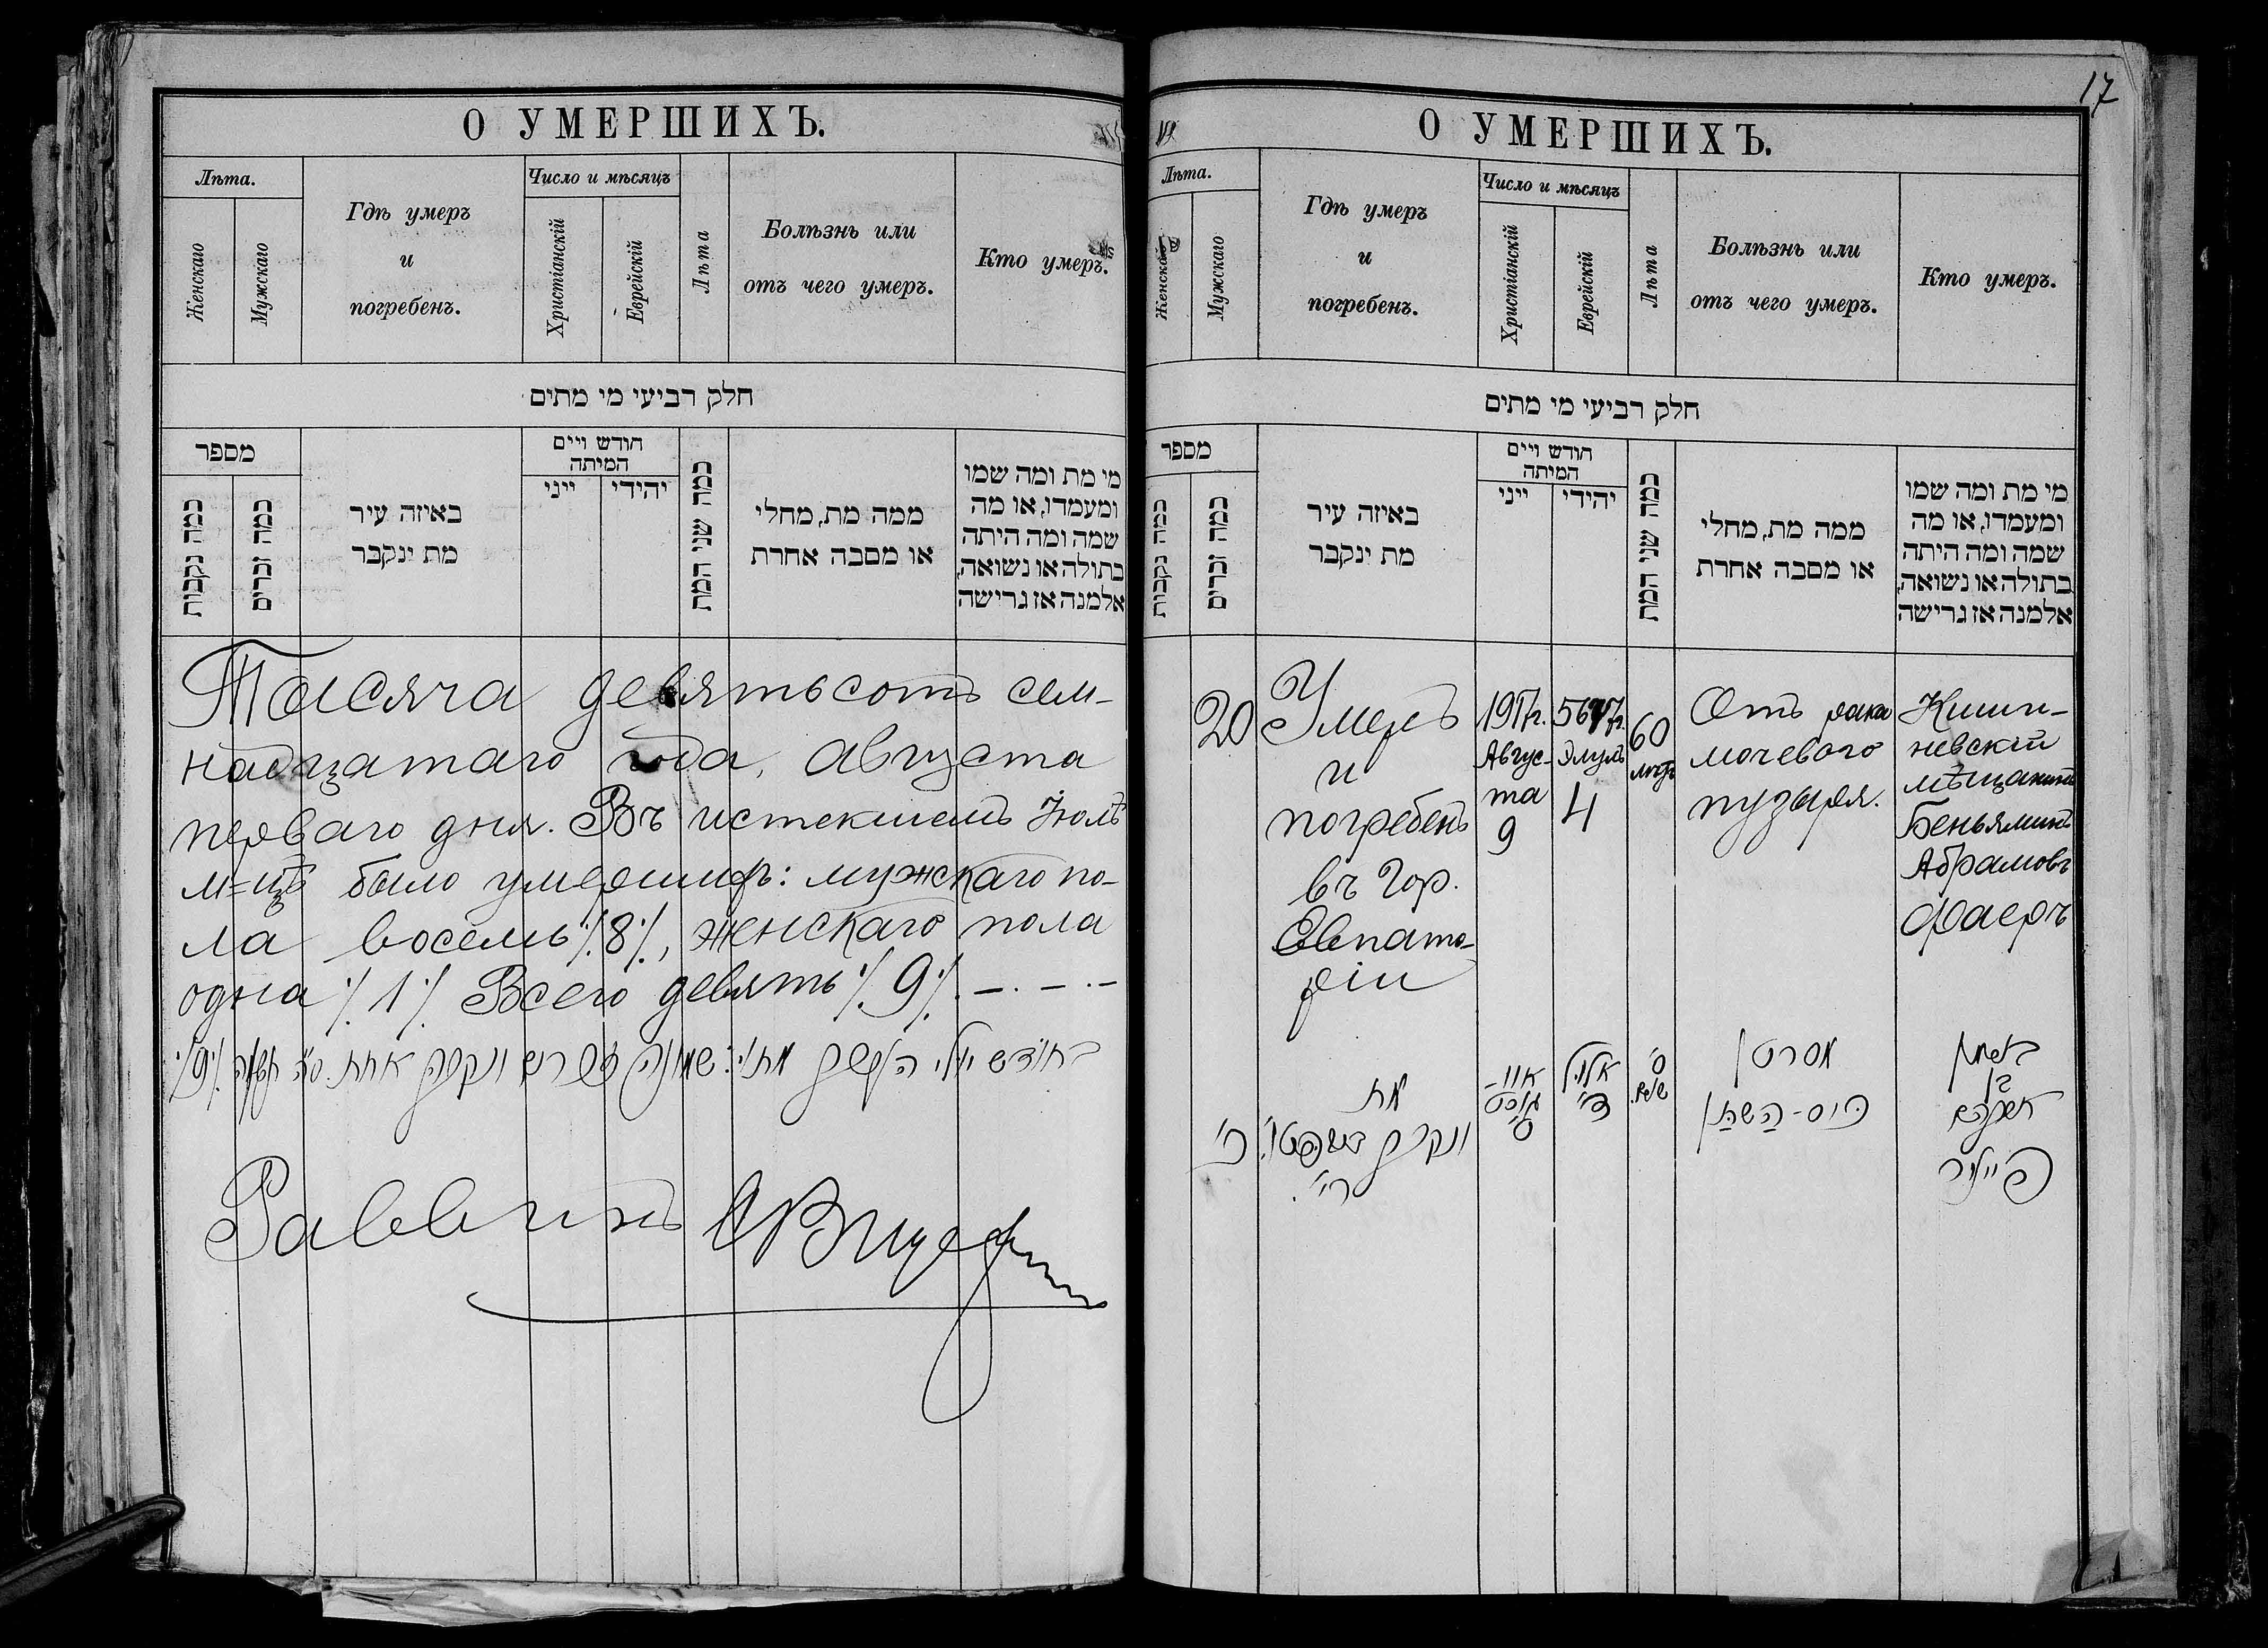 О УМЕРШИХЪ.
Лѣта.
Женскаго
Мужскаго
Гдѣ умеръ
и
погребенъ.
Число и мѣсяцъ
Христіанскій
Еврейскій
Лѣта
Болѣзнь или
отъ чего умеръ.
Кто умеръ.
חלק רביעי מי מתים
מספר
כמה נקבות
כמה זכרים
באיזה עיר
מת ינקבר
חודש ויים
המיתה
ייני
יהידי
כמה שני המת
ממה מת, מחלי
או מסבה אחרת
מי מת ומה שמו
ומעמדו, או מה
שמה ומה היתה
בתולה או נשואה,
אלמנה אז גרישה
Тысяча девятьсотъ сем-
надцатаго года, августа
перваго дня. Въ истекшемъ Іюлѣ
м=цѣ было умершихъ: мужскаго по-
ла восемь /8/, женскаго пола
одна /1/ Всего девять /9/. —. —. —
בחודש יולי
ונקבה אחת.
/9/
Раввинъ
17
О УМЕРШИХЪ.
Лѣта.
Женскаго
Мужскаго
Гдѣ умеръ
и
погребенъ.
Число и мѣсяцъ
Христіанскій
Еврейскій
Лѣта
Болѣзнь или
отъ чего умеръ.
Кто умеръ.
חלק רביעי מי מתים
מספר
כמה נקבות
כמה זכרים
באיזה עיר
מת ינקבר
חודש ויים
המיתה
ייני
יהידי
כמה שני המת
ממה מת, מחלי
או מסבה אחרת
מי מת ומה שמו
ומעמדו, או מה
שמה ומה היתה
בתולה או נשואה,
אלמנה אז גרישה
20
Умеръ
и
погребенъ
въ гор.
Евпато-
ріи
1917г.
Авгус-
та
9
5677г.
Элулъ
4
60
лѣтъ
Отъ рака
мочевого
пузыря.
Киши-
невскій
мѣщанинъ
Беньяминъ
Абрамовъ
Фаеръ
כ'
מת
ונקבר
רי'.
אוי-
גוסט
ט'
אלול
ד'
ס'
מסרטן
כיס-השתן
בנימין
בן
אברהם
פייער